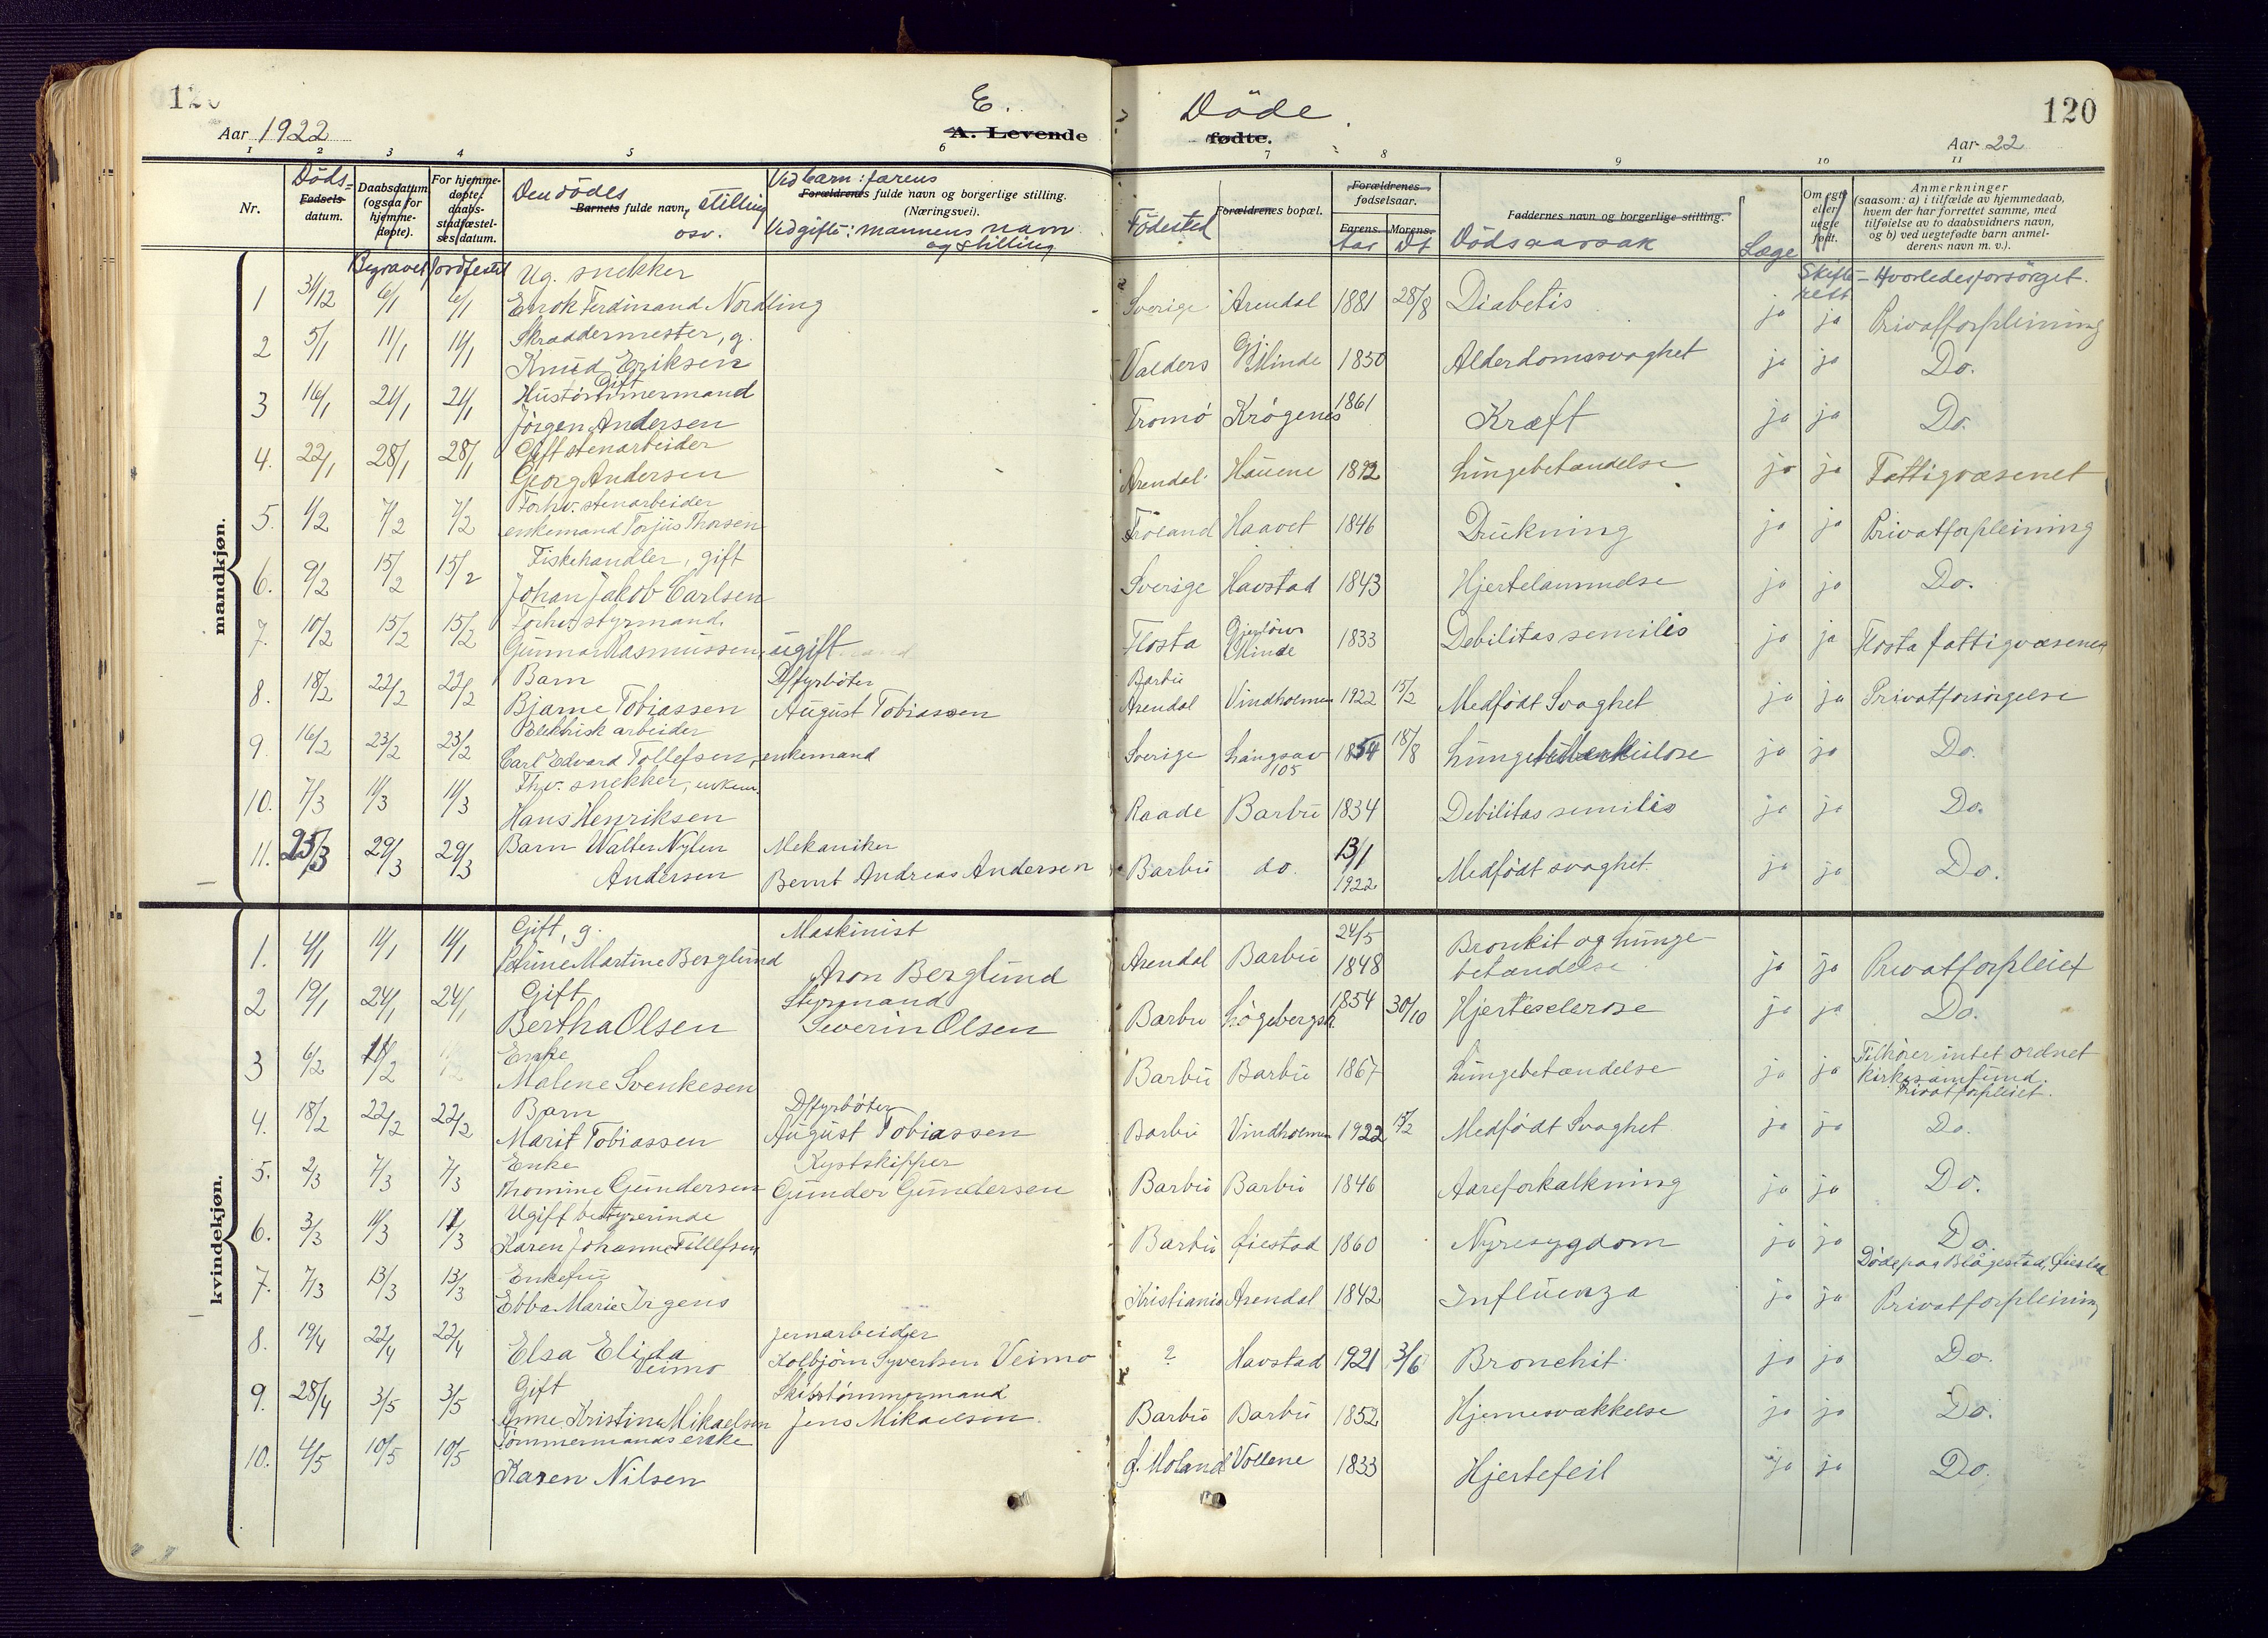 120
Aar 1922
E.
A. Levende
Døde.
fødte.
120
Aar 22
1 2 3 4 5 6 7 8 9 10 11
Nr.
Døds=
Fødsels-
datum.
Daabsdatum
(ogsaa for
hjemme-
døpte).
For hjemme-
døpte:
daabs-
stadfæstel-
ses datum.
Begravet Jordfestet
Den dødes
Barnets fulde navn, stilling
osv.
Ved barn: farens
Forældrenes fulde navn og borgerlige stilling.
(Næringsvei).
Ved gifte: mannens navn
og stilling
Fødested
Forældrenes bopæl.
Forældrenes
fødselsaar.
Farens. Morens.
Aar Dt
Faddernes navn og borgerlige stilling.
Dødsaarsak
Læge
Om egte
eller
uegte
født.
Skifte-
rett
Anmerkninger
(saasom: a) i tilfælde av hjemmedaab,
hvem der har forrettet samme, med
tilføielse av to daabsvidners navn,
og b) ved uegtefødte barn anmel-
derens navn m. v.).
Hvorledes forsørget.
mandkjøn.
Ug. snekker
1 31/12 6/1 6/1 Enok Ferdinand Nordling Sverige Arendal 1881 28/8 Diabetis ja ja Privatforpleining
Skraddermester, g.
2 5/1 11/1 11/1 Knud Eriksen Valders Gj. Minde 1850 Alderdomssvaghet ja ja Do.
Gift
Hustømmermand
3 16/1 21/1 21/1 Jørgen Andersen Tromø Krøgenes 1861 Kræft ja ja Do.
Gift stenarbeider
4. 22/1 28/1 28/1 Georg Andersen Arendal Hauene 1892 Lungebetændelse ja ja Fattigvæsenet
Forhv. stenarbeider
5. 1/2 7/2 7/2 enkemand Torjus Thorsen Frøland Haavet 1846 Drukning ja ja Privatforpleining
Fiskehandler, gift
6. 9/2 15/2 15/2 Johan Jakob Carlsen Sverige Havstad 1843 Hjertelammelse ja ja Do.
Forhv. styrmand.
7. 10/2 15/2 15/2 Gunnar Rasmussen, ugift Flosta Gjerløws Minde 1833 Debilitas semilis ja ja Flosta fattigvæsenet
Barn D/fyrbøter Barbu
8. 18/2 22/2 22/2 Bjarne Tobiassen August Tobiassen Arendal Vindholmen 1922 15/2 Medfødt Svaghet ja ja Privatforsørgelse
Elektrisk arbeider
9. 16/2 23/2 23/2 Carl Edvard Tollefsen, enkemand Sverige Langsæv 105 1854 18/8 Lungetuberkulose ja ja Do.
Fhv. snekker, enkem.
10. 7/3 11/3 11/3 Hans Henriksen Raade Barbu 1834 Debilitas semilis ja ja Do.
11. 25/3 29/3 29/3 Barn Walter Nylen Mekaniker
Andersen Bernt Andreas Andersen Barbu do. 13/1 1922 Medfødt svaghet. ja ja Do.
kvindekjøn.
Gift, g. Maskinist
1. 4/1 11/1 11/1 Petrine Martine Berglund Aron Berglund Arendal Barbu 24/5 1848 Bronkit og lunge-
betændelse ja ja Privatforpleiet
Gift Styrmand
2 19/1 24/1 24/1 Bertha Olsen Severin Olsen Barbu Løgebergsk. 1854 30/10 Hjertesclerose ja ja Do.
Enke
3 6/2 11/2 Malene Svenkesen Barbu Barbu 1867 Lungebetændelse ja ja Tilhører intet ordnet
kirkesamfund.
Privatforpleiet.
Barn D/fyrbøter
4. 18/2 22/2 22/2 Marit Tobiassen August Tobiassen Barbu Vindholmen 1922 15/2 Medfødt Svaghet ja ja Do.
Enke Kystskipper
5. 2/3 7/3 7/3 Thomine Gundersen Gunder Gundersen Barbu Barbu 1846 Aareforkalkning ja ja Do.
Ugift bestyrerinde
6. 3/3 11/3 11/3 Karen Johanne Tellefsen Barbu Øiestad 1860 Nyresygdom ja ja Do.
Døde paa Blågestad, Øiestad
Enkefru
7. 7/3 13/3 13/3 Ebba Marie Irgens Kristiania Arendal 1842 Influenza ja ja Privatforpleining
Jernarbeider
8. 19/4 22/4 22/4 Elsa Elida Veimo Kolbjørn Syvertsen Veimo ? Havstad 1921 3/6 Bronchit. ja ja Do.
Gift Skibstømmermand
9. 28/4 3/5 3/5 Anne Kristine Mikaelsen Jens Mikaelsen. Barbu Barbu 1852 Hjernesvækkelse ja ja Do.
Tømmermands enke
10. 4/5 10/5 10/5 Karen Nilsen Ø. Moland Vollene 1833 Hjertefeil ja ja Do.